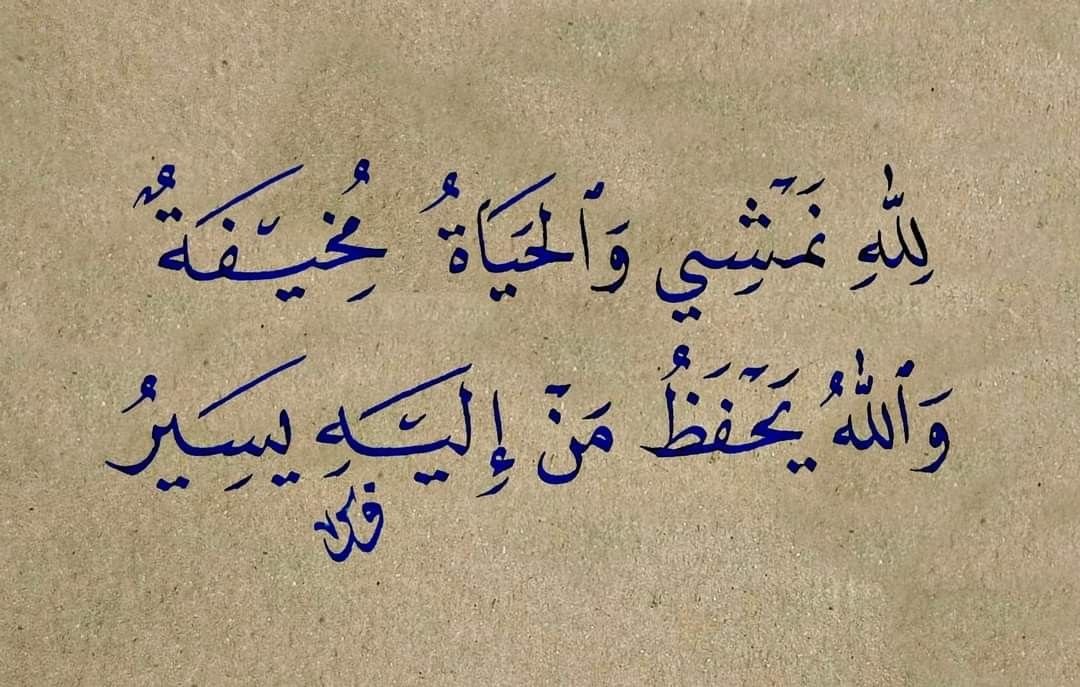 لِلّٰهِ نَمْشِي وَٱلْحَيَاةُ مُخِيْفَةٌ
وَٱللّٰهُ يَحْفَظُ مَنْ إِلَيْهِ يَسِيرُ